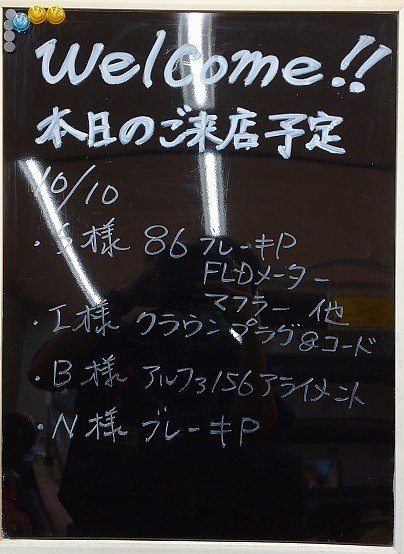 Welcome!!
本日のご来店予定
10/10
・S様 86 ブレーキP
FLDメーター
マフラー 他
・I様 クラウンプラグ&コード
・B様 アルファ156アライメント
・N様 ブレーキP